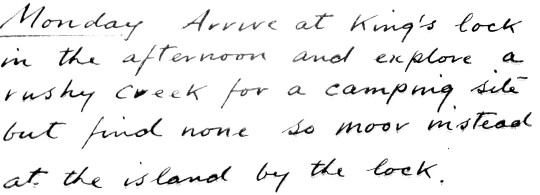 Monday Arrive at King's lock
in the afternoon and explore a
rushy creek for a camping site
but find none so moor instead
at the island by the lock.